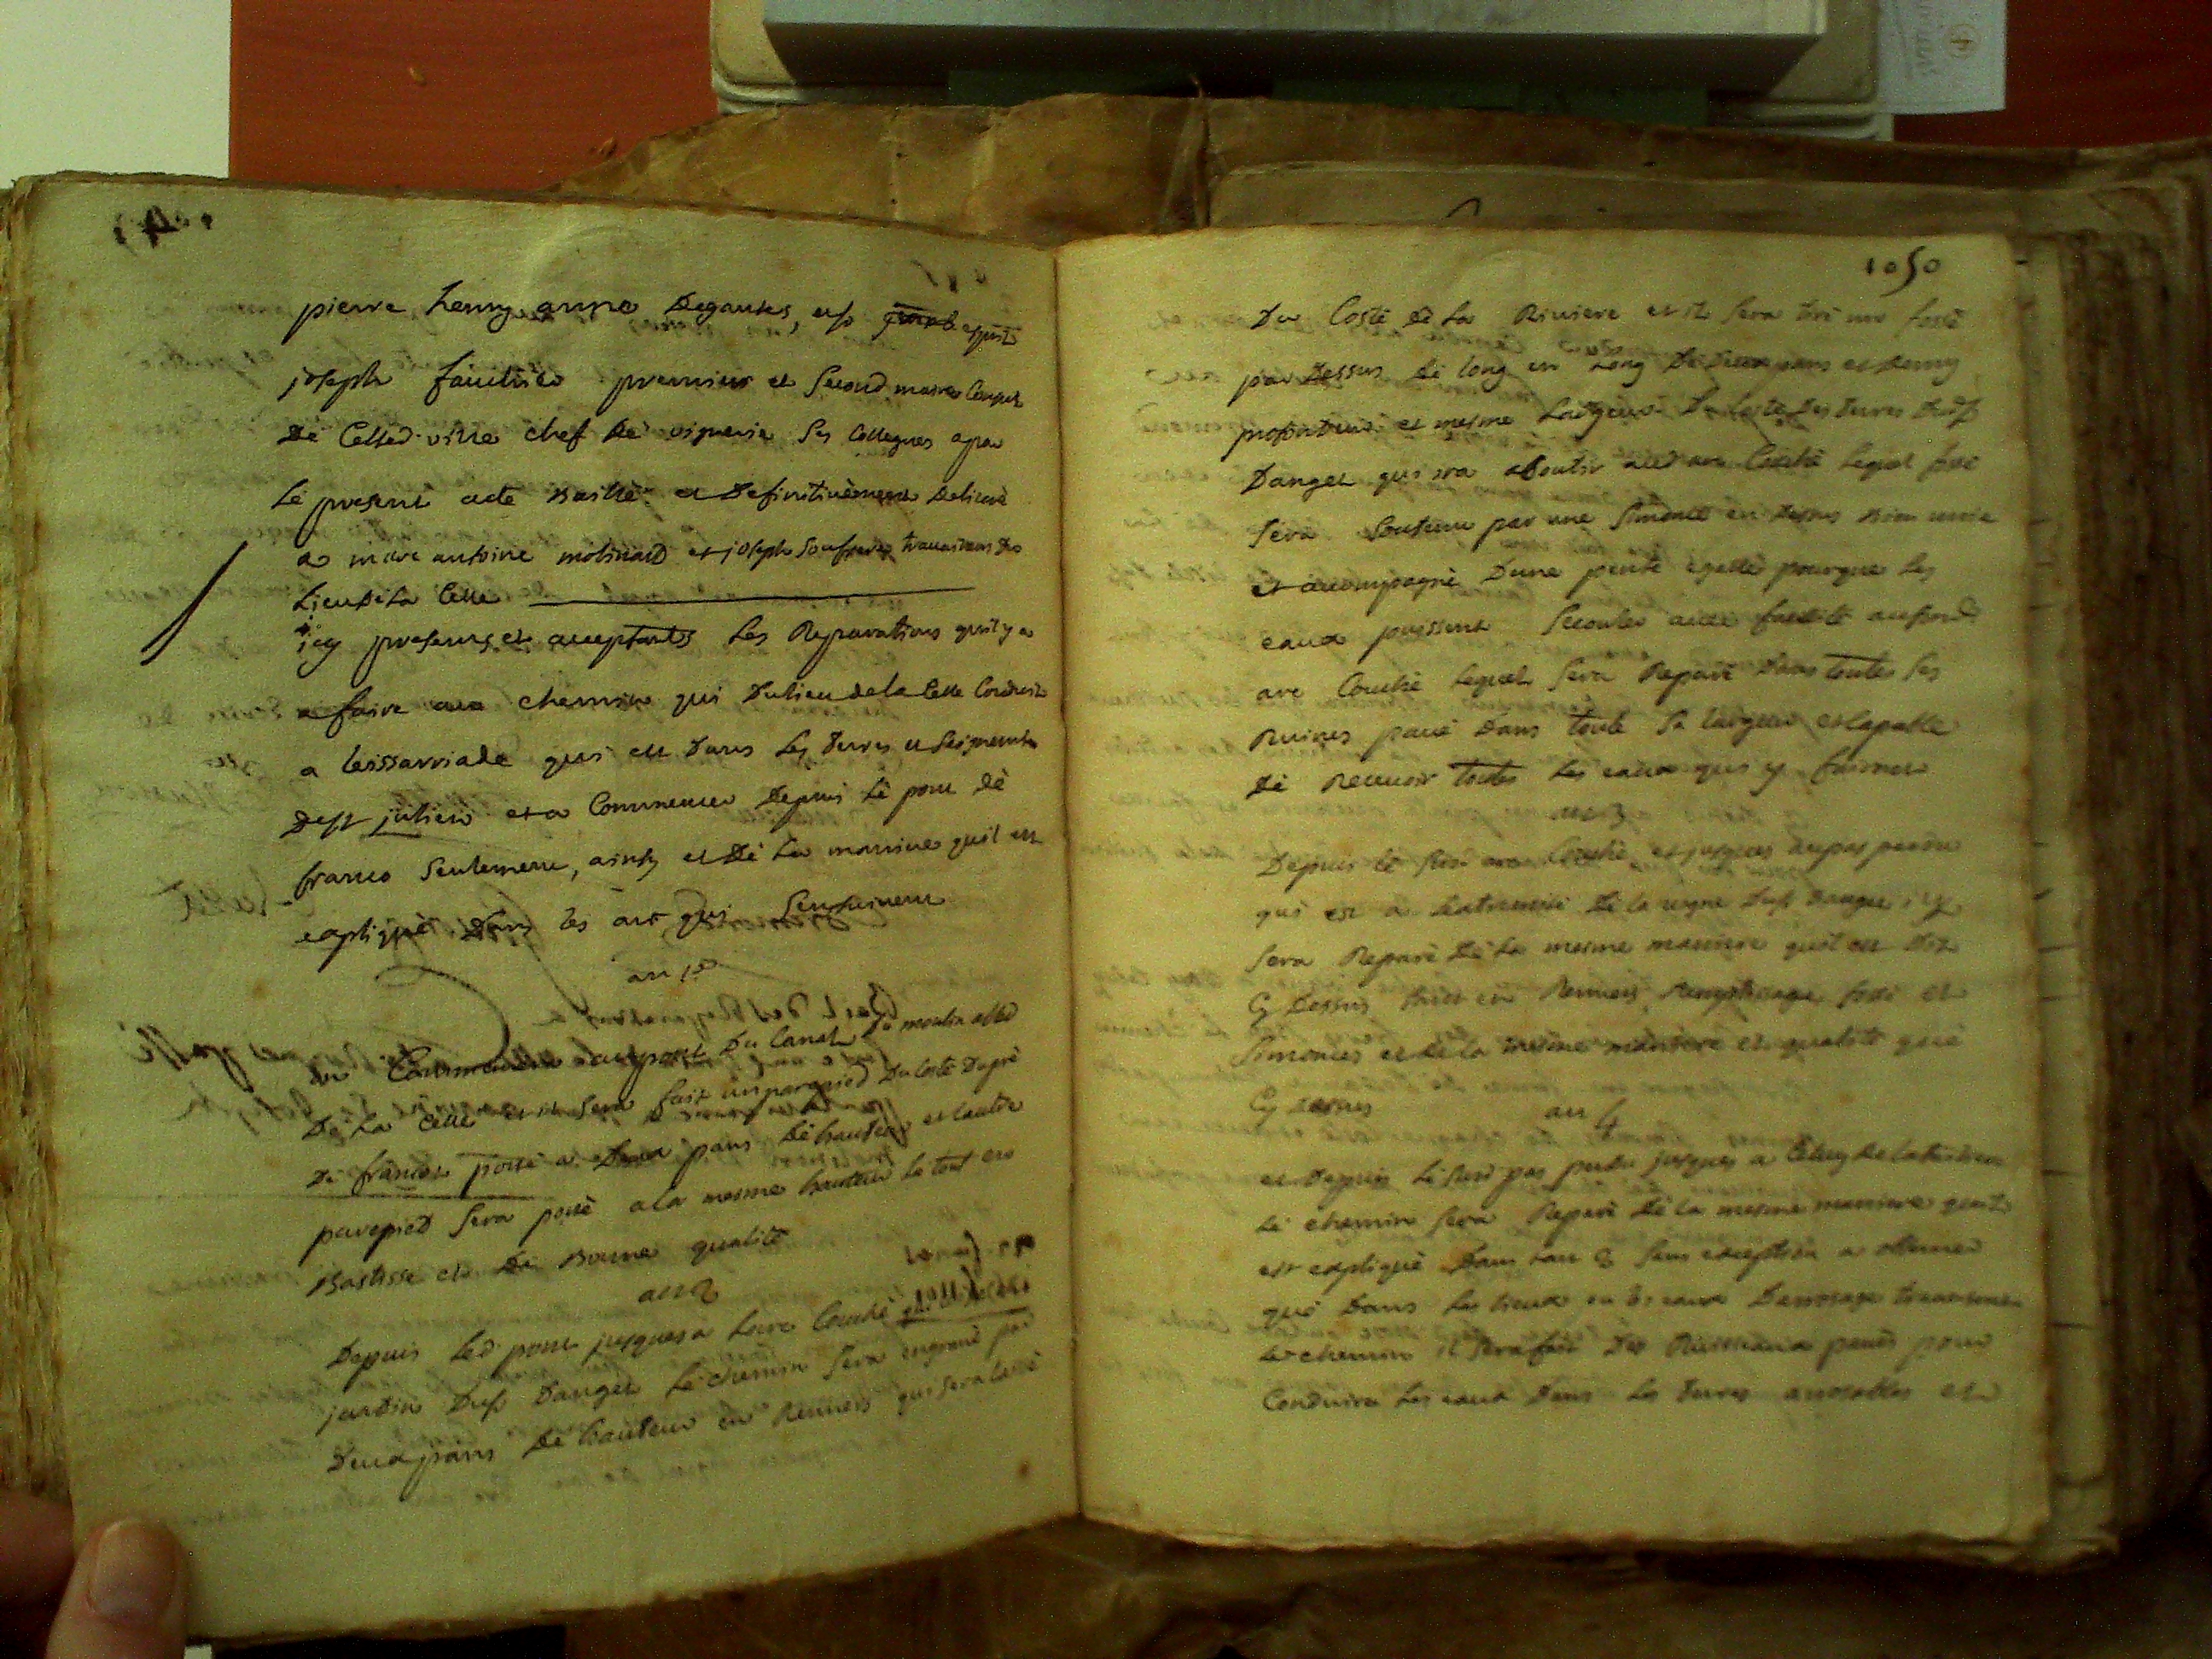 pierre henry anne Degantes, et sr esprit
joseph fauchier premier et second maires Consuls
De Celled. ville chef de viguerie ses Collegues a par
le present acte Baillé et Definitivement Delivré
a marc antoine molinard et joseph travailleurs du
Lieu de la Celle
icy presens et acceptants les Reparations quil y a
a faire au chemin qui Du lieu de la Celle Conduit
a qui est dans les terres et
Dess julien et a Commencer Depuis le pont de
franco seulement, ainsy et de la maniere quil est
expliqué dans les art qui sensuivent
art 1er
on Commencera au pont Du Canal du moulin
De la Celle et il sera fait un parapied Du Costé Du pré
De posé a deux pans de hauteur et lautre
parepied sera posé a la mesme hauteur le tout en
Bastisse et De Bonne qualité
art 2
Depuis led pont jusques a larc Couché
jardin Dusr Dauget le chemin sera engravé par
Deux pans de hauteur en qui sera
1050
Du Costé de la Riviere et il sera tiré un fossé
par Dessus de long en Long De deux pans et demy
profondeur et mesme Largeur Du Costé des terres dudsr
Dauget qui ira aboutir aud arc Couché lequel fossé
sera soutenu par une en dessus Bien unie
et accompagné Dune pente egalle pour que les
eaux puissent secouler avec facilité
arc Couché lequel sera Reparé dans toutes ses
Ruines pavé Dans toute sa largeur et Capable
De Recevoir toutes les eaux qui y
art 3
Depuis le susd arc Couché et jusques au pas perdu
qui est a lextremité De la vigne dusr Dauget il y
sera Reparé De la mesme maniere quil est dit
Cy Dessus fossé et
et de la mesme maniere et qualité que
Cy dessus
art 4
et Depuis le susd pas perdu jusques a Celuy de
le chemin sera Reparé De la mesme maniere quil
est expliqué Dans lart 3 sans exception
que Dans les lieux ou les eaux Darrosage traversent
le chemin il sera fait Des Ruisseaux pavés pour
Conduire les eaux Dans les terres arrosables et